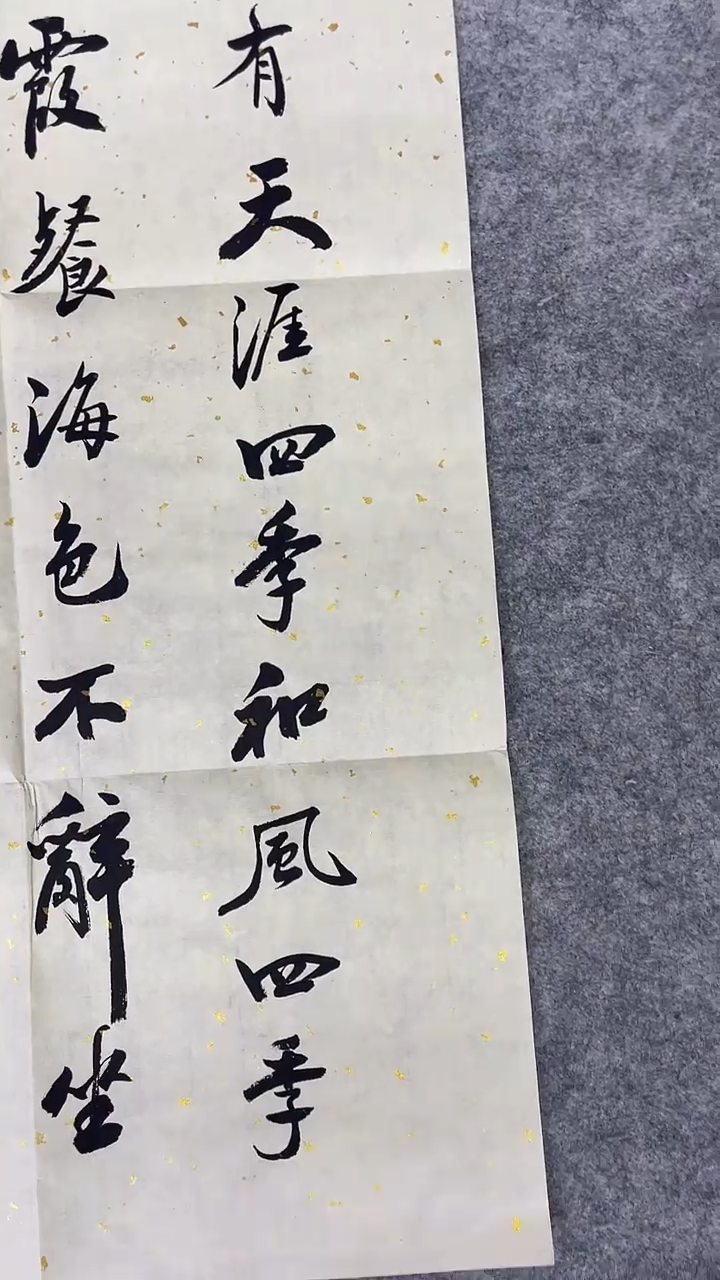 有天涯四季和風四季
霞餐海色不辭坐